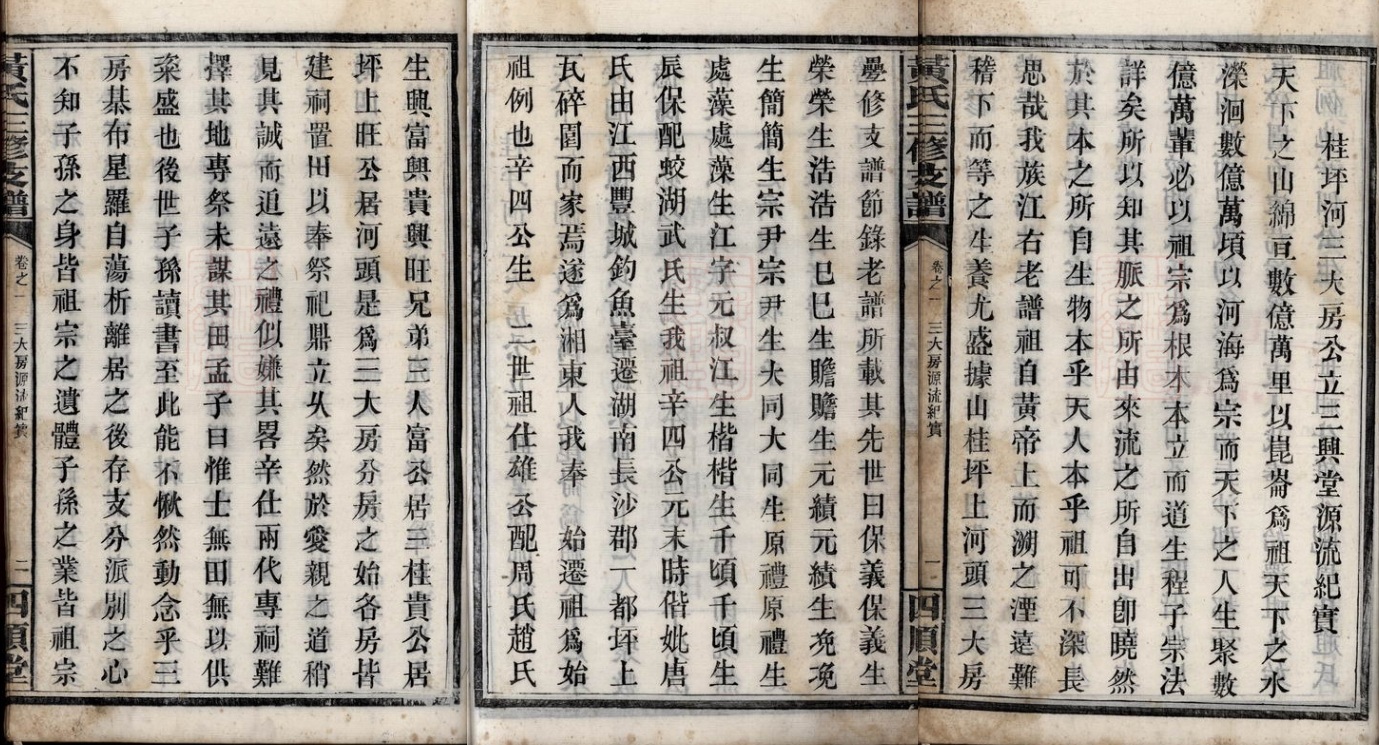 桂坪河三大房公立三興堂源流紀實
天下之山綿亘數億萬里以崑崙爲祖天下之水
瀠洄數億萬頃以河海爲宗而天下之人生聚數
億萬軰必以祖宗爲根本本立而道生程子宗法
詳矣所以知其脈之所由來流之所自出卽曉然
於其本之所自生物本乎天人本乎祖可不深長
思哉我族江右老譜祖自黃帝上而溯之湮遠難
稽下而等之生養尤盛據山桂坪上河頭三大房
黃氏三修支譜
卷之一
三大房源流紀實
一
四順堂
纍修支譜節錄老譜所載其先世曰保義保義生
榮榮生浩浩生巳巳生贍贍生元績元績生凂凂
生簡簡生宗尹宗尹生大同大同生原禮原禮生
處藻處藻生江字元叔江生楷楷生千頃千頃生
辰保配蛟湖武氏生我祖辛四公元末時偕妣唐
氏由江西豐城釣魚臺遷湖南長沙郡一都坪上
瓦碎園而家焉遂爲湘東人我奉 始遷祖爲始
祖例也辛四公生 二世祖仕雄公配周氏趙氏
生興富興貴興旺兄弟三人富公居三桂貴公居
坪上旺公居河頭是爲三大房分房之始各房皆
建祠置田以奉祭祀鼎立乆矣然於愛親之道稍
見其誠而追遠之禮似嫌其畧辛仕兩代專祠難
擇其地專祭未謀其田孟子曰惟士無田無以供
粢盛也後世子孫讀書至此能不愀然動念乎三
房棊布星羅自蕩析離居之後存支分派別之心
不知子孫之身皆祖宗之遺體子孫之業皆祖宗
黃氏三修支譜
卷之一
三大房源流紀實
二
四順堂